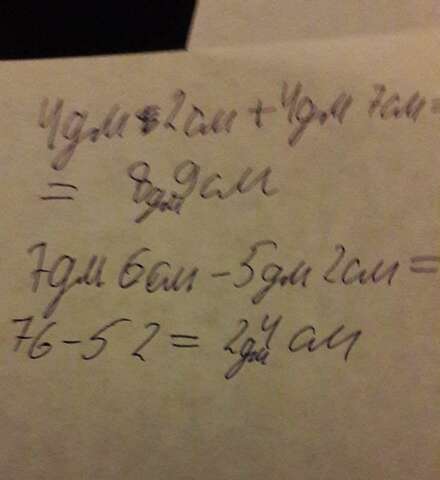 4дм 2см + 4дм 7см =
= 8дм 9см
7дм 6см - 5дм 2см =
76 - 52 = 2дм 4 см